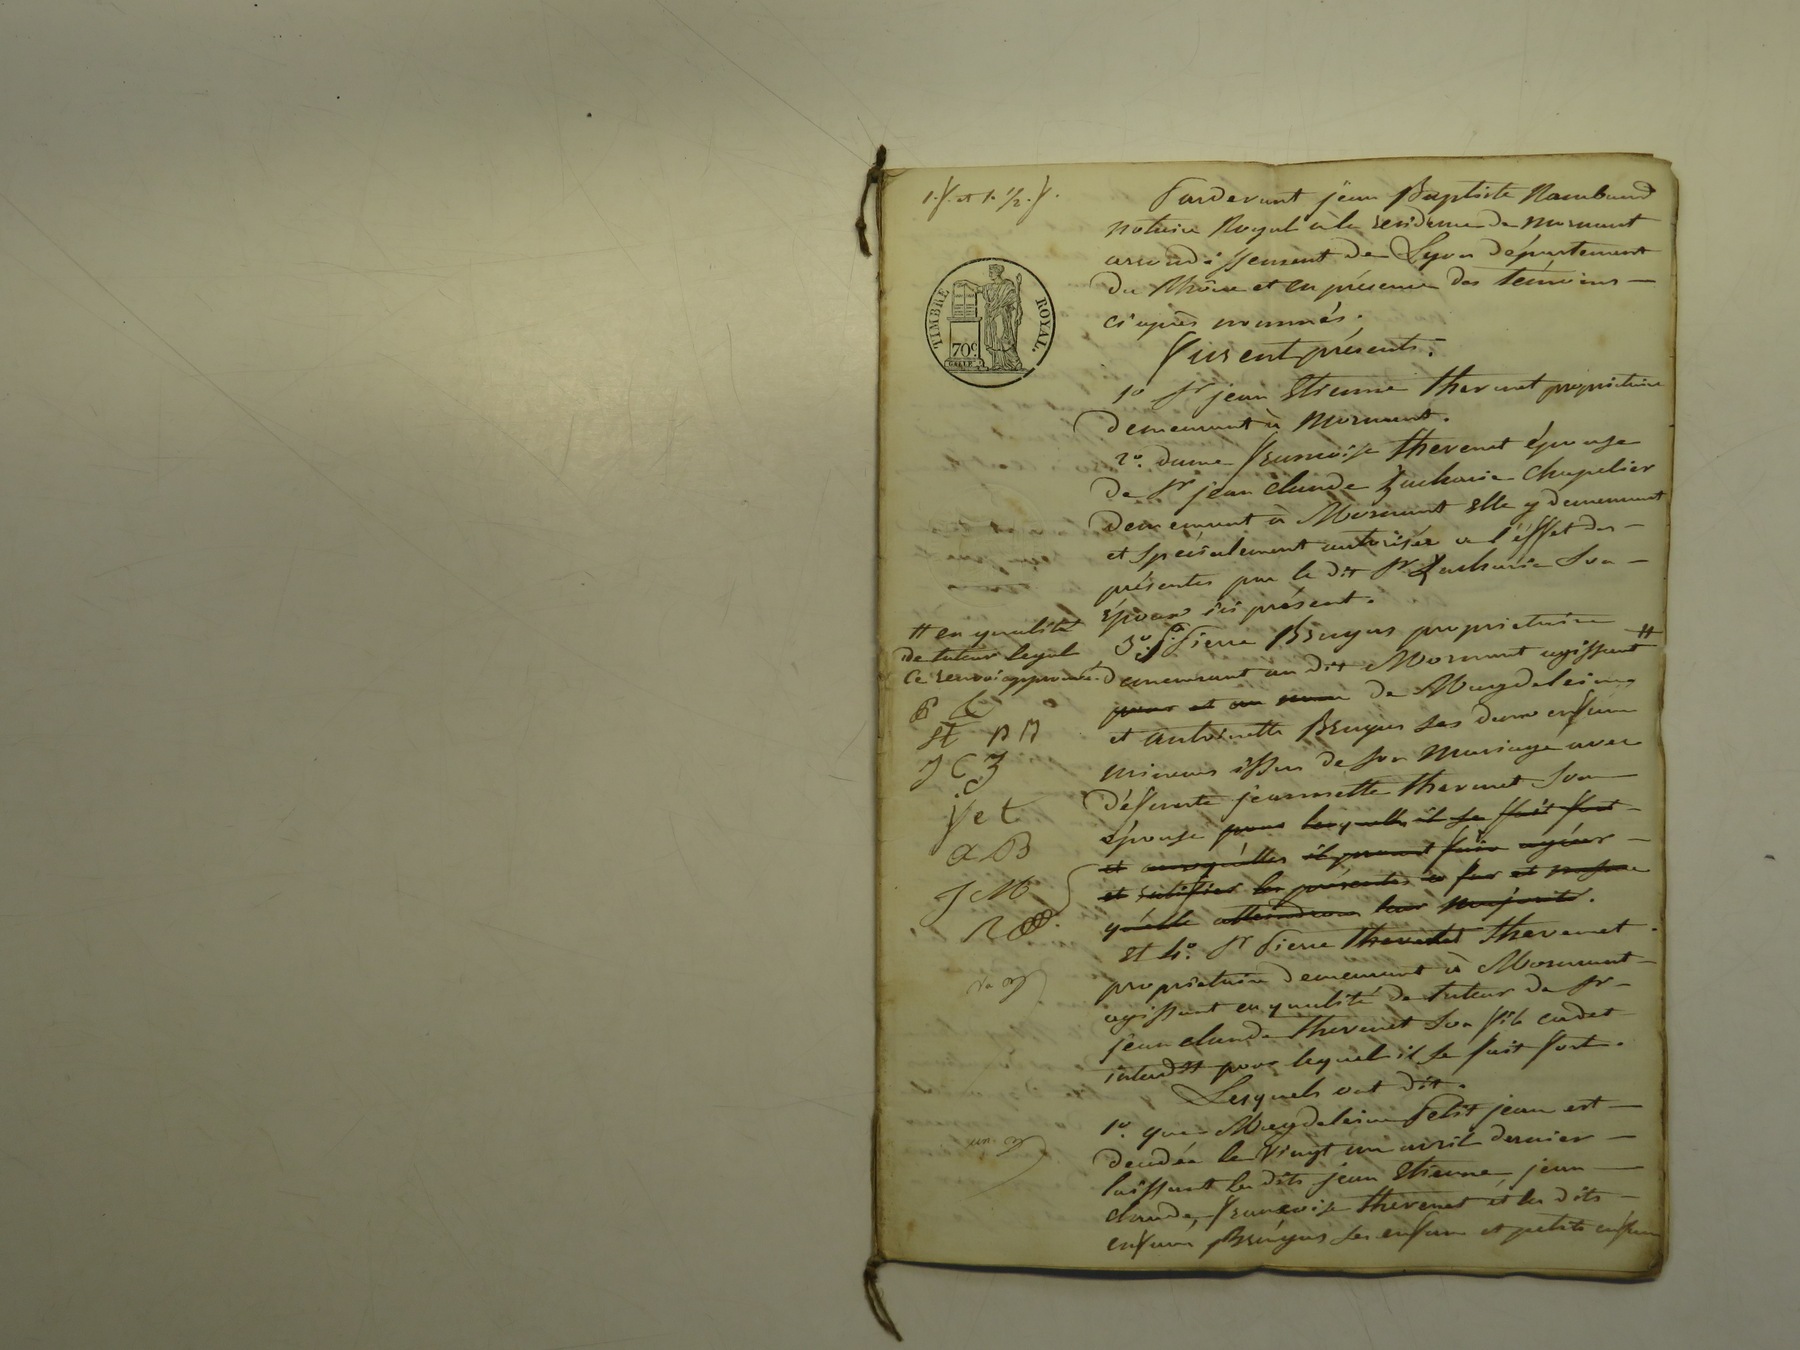 1. f. et 1. 1/2. f.
TIMBRE ROYAL.
70c
Pardevant jean Baptiste Rambaud
notaire Royal à la residence de mornant
arrondissement de Lyon département
du Rhône et en présence des témoins —
ci après nommés.
furent présents.
1° Sr jean Etienne thevenet propriétaire
demeurant à Mornant.
2°. dame françoise thevenet épouse
de Sr jean claude Zacharie Chapelier
demeurant à Mornant Elle y demeurant
et spécialement autorisée a l'éffet des —
présentes par le dit Sr Zacharie son —
époux ici présent.
3°. Sr Pierre Bruyas propriétaire
demeurant au dit Mornant agissant #
pour et au nom de Magdeleine
et antoinette Bruyas ses deux enfans
mineurs issus de son mariage avec
défunte jeannette thevenet son
épouse pour lesquelles il se fait fort —
et auxquelles il promet faire agréer —
et ratifier les présentes a fur et mesure
qu'elle atteindront leur majorité.
Et 4°. Sr Pierre thevenet thevenet
propriétaire demeurant à Mornant —
agissant en qualité de tuteur de Sr —
jean claude thevenet son fils cadet
interdit pour lequel il se fait fort.
Lesquels ont dit.
1°. que Magdeleine Petit jean est —
décédée le Vingt un avril dernier —
laissant les dits jean Etienne, jean —
claude, françoise thevenet et les dits —
enfans Bruyas ses enfans et petits enfans
# en qualité
de tuteur legal
Ce renvoi approuvé.
St PB
J C Z
fet
a B
J M